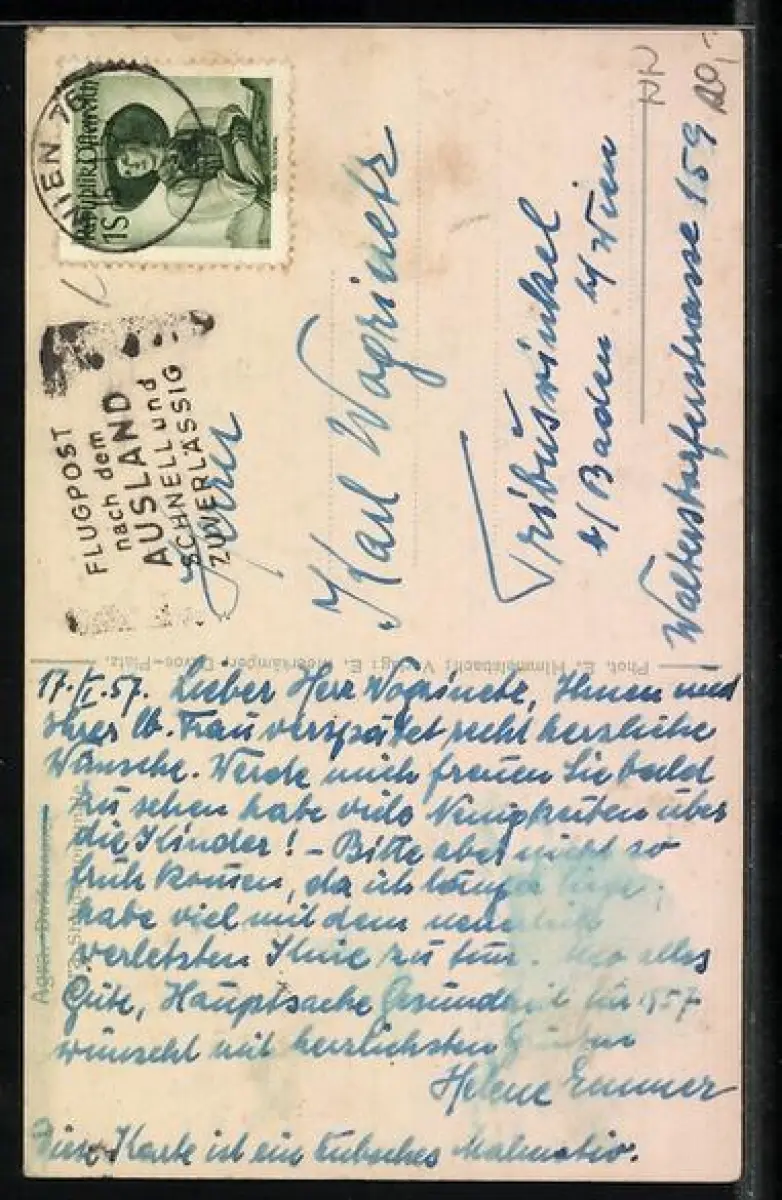 WIEN 76
Republik Österreich
1S
FLUGPOST
nach dem
AUSLAND
SCHNELL und
ZUVERLÄSSIG
Herrn
Karl Wogrinetz
Tribuswinkel
b/Baden b/Wien
Waltersdorferstrasse 159
20,-
Phot. E. Himmelsbach; Verlag: E. Meerkämper, Davos-Platz.
17./I.57. Lieber Herr Wogrinetz, Ihnen und
Ihrer lb. Frau verspätet recht herzliche
Wünsche. Werde mich freuen Sie bald
zu sehen habe viele Neuigkeiten über
die Kinder! - Bitte aber nicht so
früh kommen, da ich länger liege,
habe viel mit dem
verletzten Knie zu tun. Also alles
Gute, Hauptsache Gesundheit für 1957
wünscht mit herzlichsten Grüßen
Helene Emmer
Diese Karte ist ein hübsches Malmotiv.